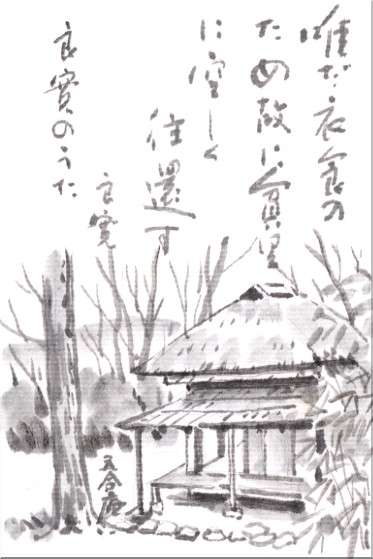 唯だ衣食の
ため故に貧里
に空しく
往還す
良寛
良寛のうた
五合庵